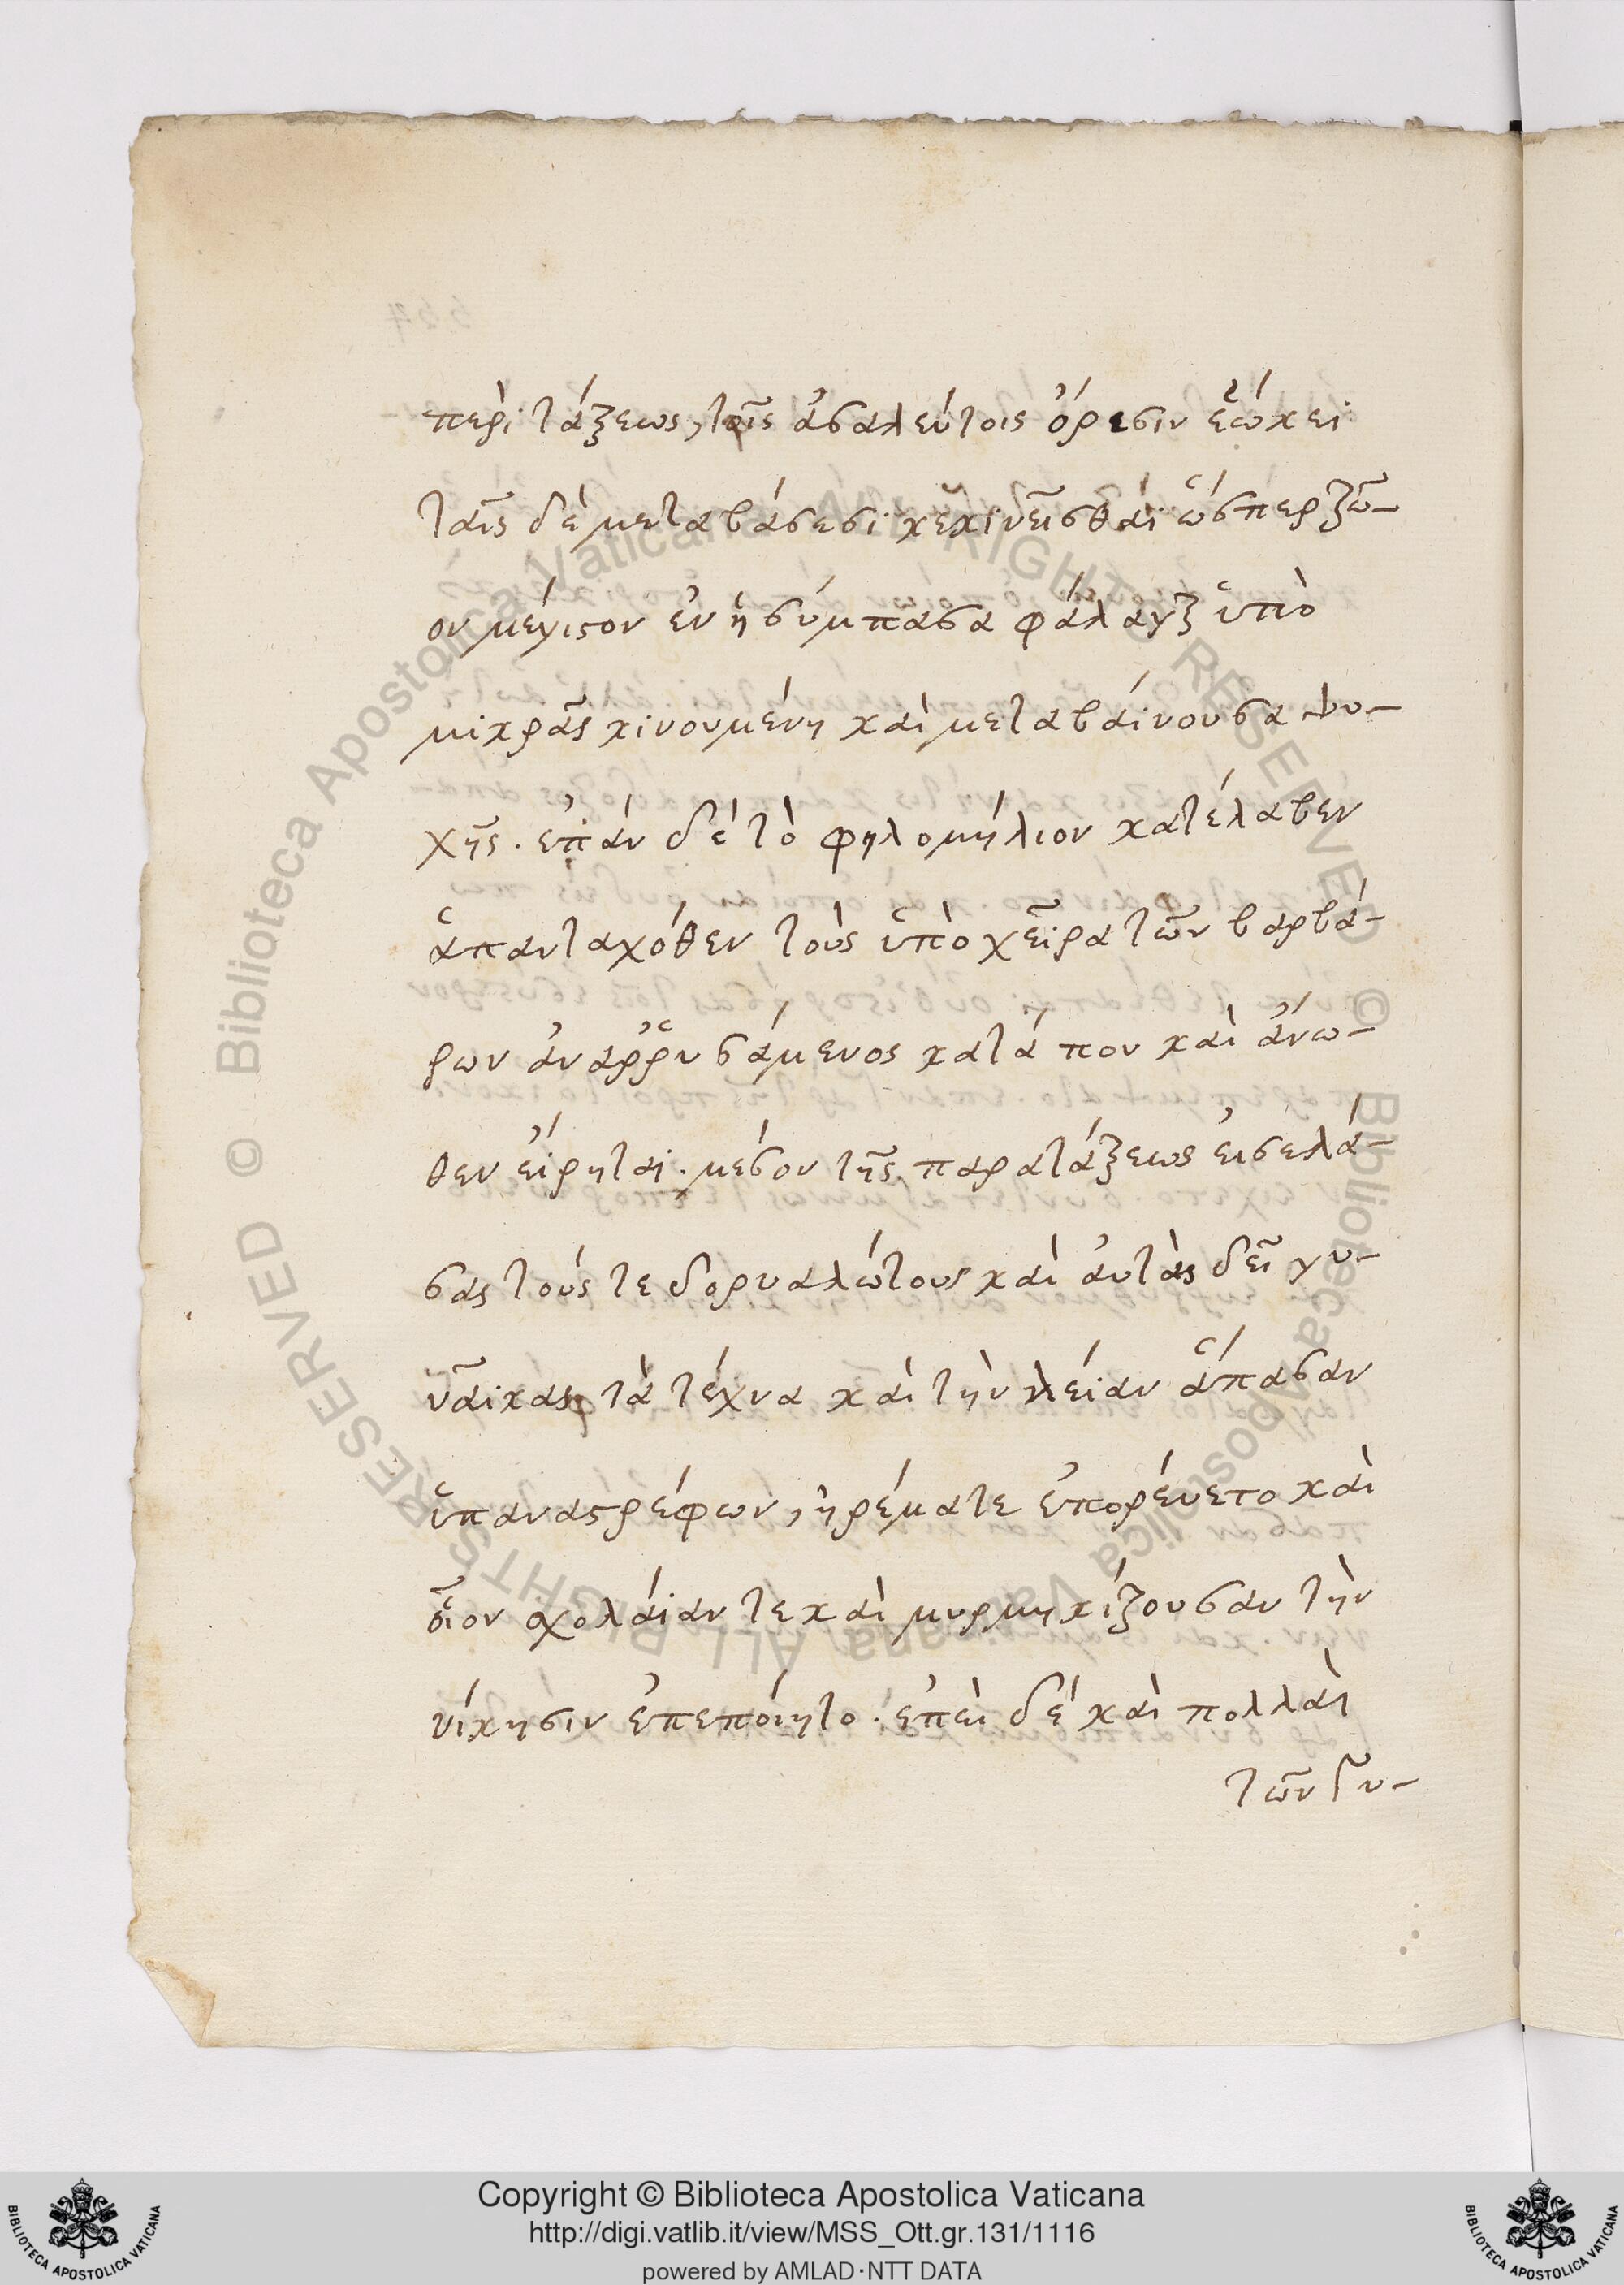 περὶ τάξεως, τοῖς ἀσαλεύτοις ὄρεσιν ἐῴκει
ταῖς δὲ μεταβάσεσι κεκινεῖσθαι ὥσπερ ζῶ-
ον μέγιστον ἐν ἡ σύμπασα φάλαγξ ὑπὸ
μικρᾶς κινουμένη καὶ μεταβαίνουσα ψυ-
χῆς. ἐπὰν δὲ τὸ φηλομήλιον κατέλαβεν
ἁπανταχόθεν τοὺς ὑπὸ χεῖρα τῶν βαρβά-
ρων ἀναῤῥυσάμενος κατά που καὶ ἄνω-
θεν εἴρηται. μέσον τῆς παρατάξεως εἰσελά-
σας τούς τε δορυαλώτους καὶ ἀυτὰς δεῖ γυ-
ναῖκας τὰ τέκνα καὶ τὴν λείαν ἅπασαν
ὑπαναστρέφων, ἠρέματε ἐπορέυετο καὶ
οἷον σχολαίαν τε καὶ μυρμηκίζουσαν τὴν
νίκησιν ἐπεποίητο. ἐπεὶ δὲ καὶ πολλαὶ
τῶν γυ-
Copyright © Biblioteca Apostolica Vaticana
http://digi.vatlib.it/view/MSS_Ott.gr.131/1116
powered by AMLAD·NTT DATA
BIBLIOTECA APOSTOLICA VATICANA
BIBLIOTECA APOSTOLICA VATICANA
© Biblioteca Apostolica Vaticana ALL RIGHTS RESERVED
© Biblioteca Apostolica Vaticana ALL RIGHTS RESERVED